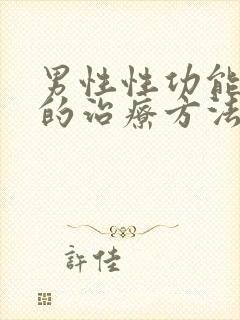 男性性功能
的治療方法
許佳